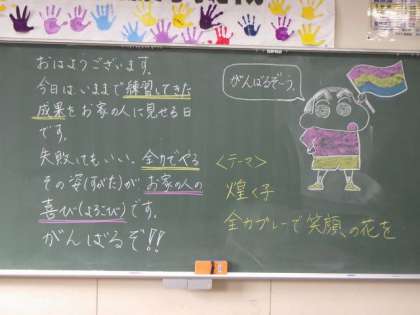 おはようございます。
今日は、いままで練習してきた
成果をお家の人に見せる日
です。
失敗してもいい。全力でやる
その姿(すがた)が お家の人の
喜び(よろこび)です。
がんばるぞ!!
がんばるぞーぅ。
<テーマ>
煌く子
全力プレーで笑顔の花を